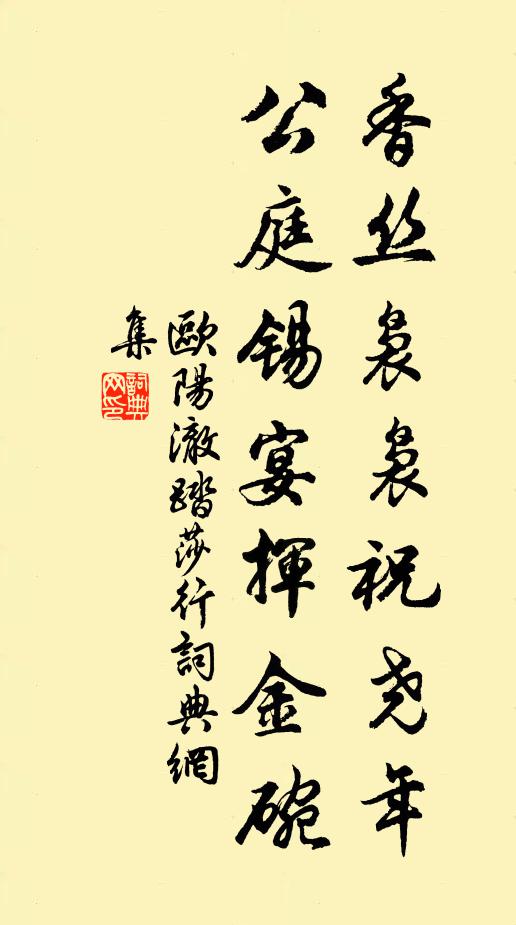 香丝袅袅祝尧年
公庭锡宴揮金碗
歐陽澈踏莎行詞典網
集
詞典
网印